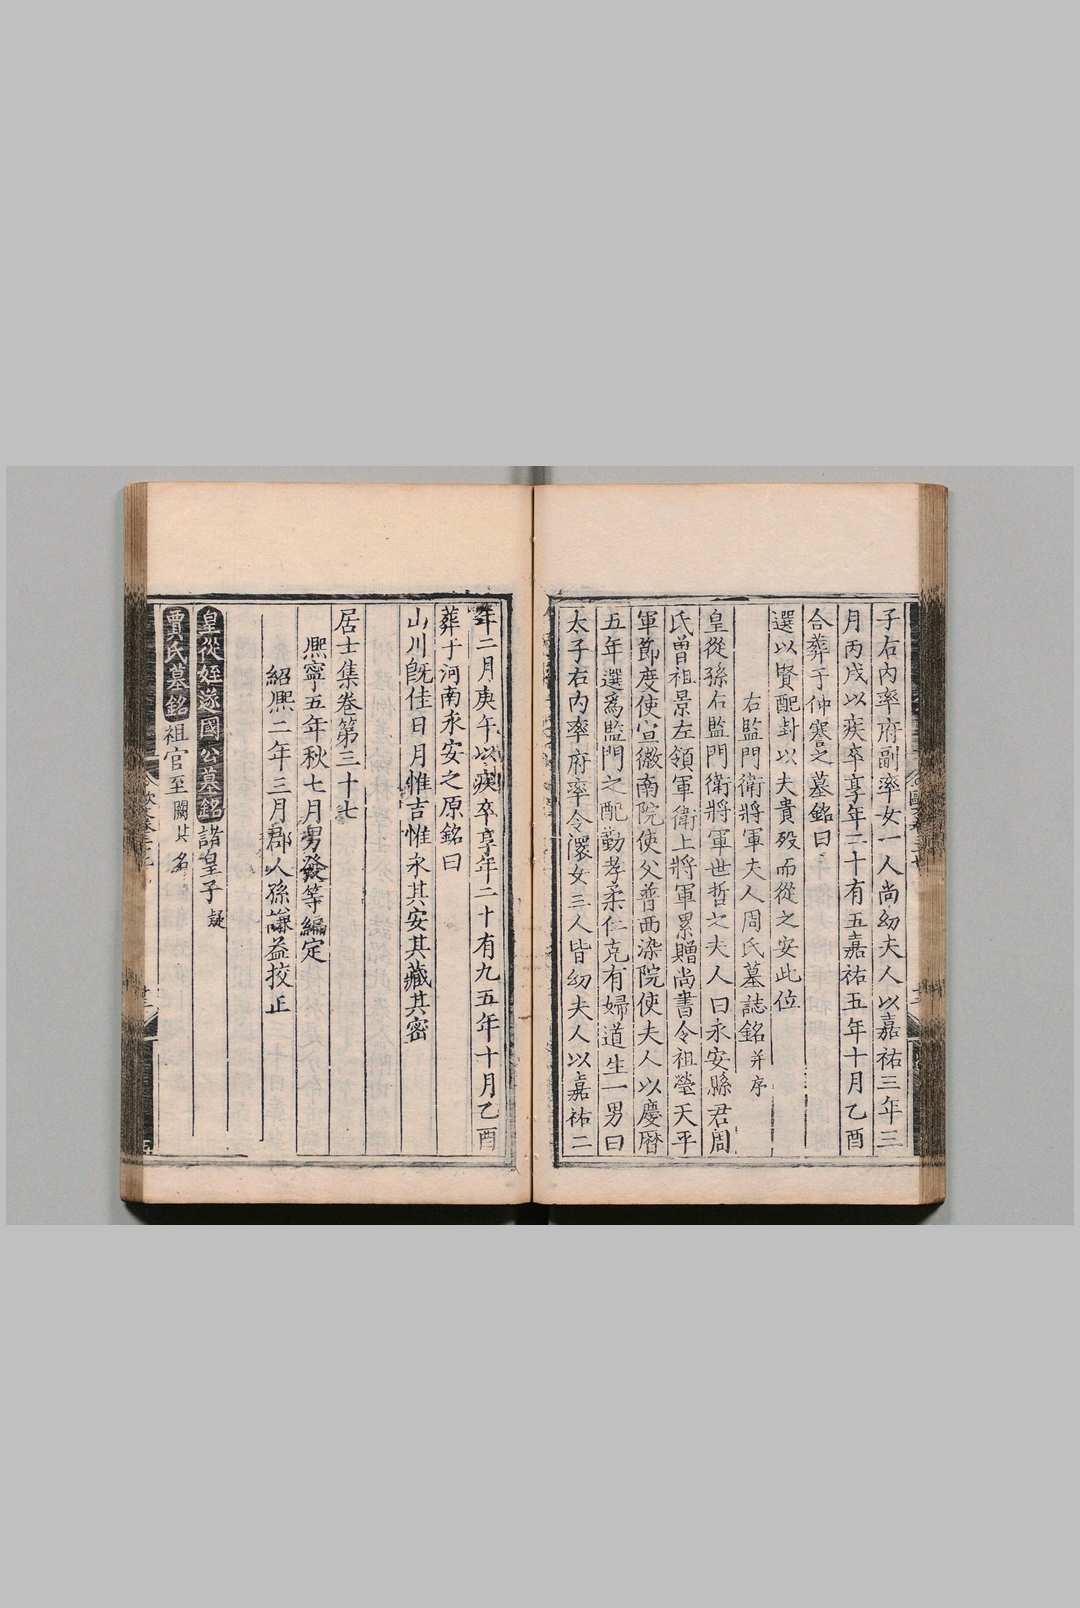 子右內率府副率女一人尚幼夫人以嘉祐三年三
月丙戌以疾卒享年二十有五嘉祐五年十月乙酉
合葬于仲䆳之墓銘曰
選以賢配封以夫貴歿而從之安此位
右監門衛將軍夫人周氏墓誌銘并序
皇從孫右監門衛將軍世哲之夫人曰永安縣君周
氏曾祖景左領軍衛上將軍累贈尚書令祖瑩天平
軍節度使宣徽南院使父普西染院使夫人以慶曆
五年選為監門之配勤孝柔仁克有婦道生一男曰
太子右內率府率令澴女三人皆幼夫人以嘉祐二
年二月庚午以疾卒享年二十有九五年十月乙酉
葬于河南永安之原銘曰
山川旣佳日月惟吉惟永其安其藏其密
居士集卷第三十七
熙寧五年秋七月男發等編定
紹熙二年三月郡人孫謙益挍正
皇從姪遂國公墓銘諸皇子疑
賈氏墓銘祖官至闕其名